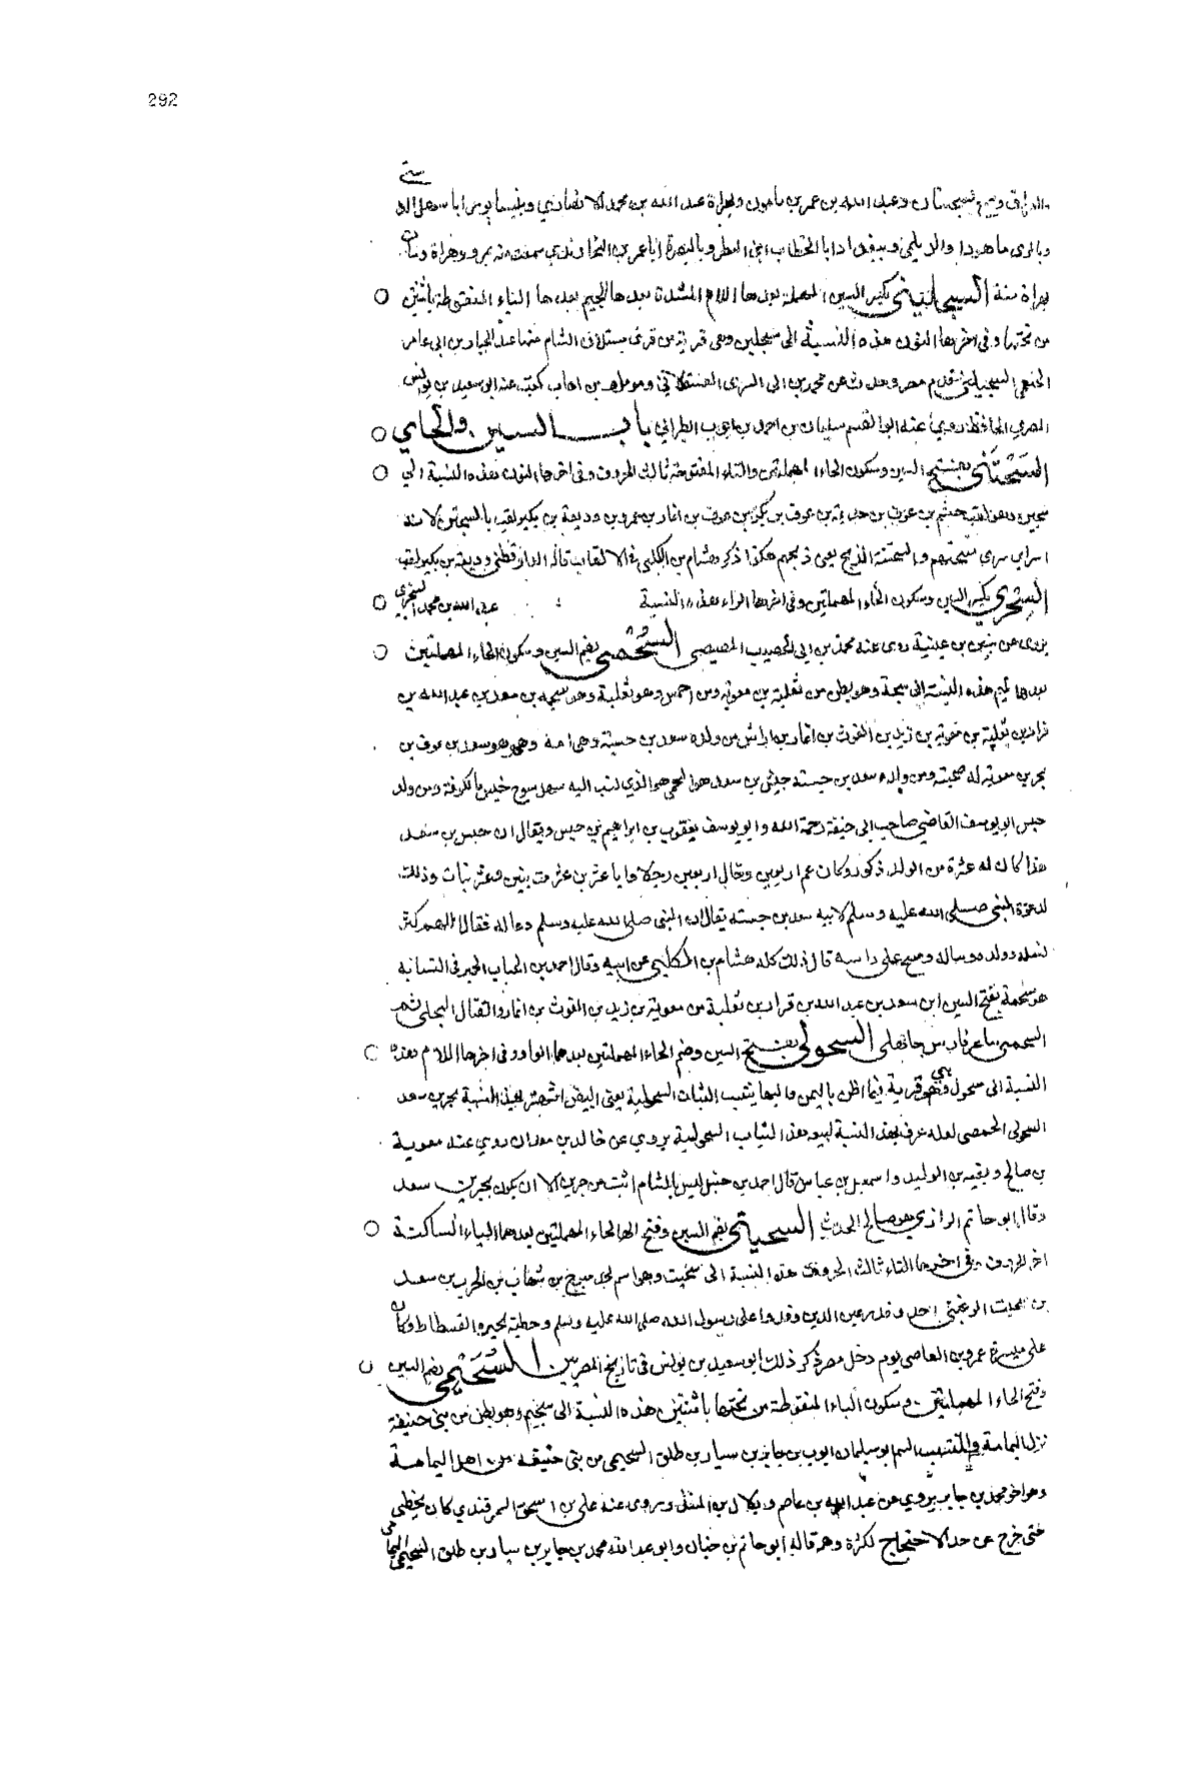 292
وعبد الله بن عمر بن مامون وبهراة عبد الله بن محمد الانصاري وبنيسابور ابا سعد
وبالري ماهيردا والديلمي وببغداد ابا الخطاب ابن البطر وبالبصرة ابا عمر بن النحاوندي سمعت منه بمرو وهراة ومات
بهراة سنة السجليني بكسر السين المهملة بعدها اللام المشددة بعدها الجيم بعدها الياء المنقوطة باثنتين
من تحتها وفي اخرها النون هذه النسبة الى سجلين وهي قرية من قرى عسقلان الشام منها عبد الجبار بن ابي عامر
الخثعمي السجليني قدم مصر وحدث عن محمد بن ابي السري العسقلاني ومومل بن اهاب كتب عنه ابو سعيد بن يونس
المصري الحافظ روى عنه ابو القسم سليمان بن احمد بن ايوب الطبراني باب السين والحاي
السحتني بفتح السين وسكون الحاء المهملتين والتاء المفتوحة ثالث الحروف وفي اخرها النون هذه النسبة الي
وهو لقب جشم بن عوف بن جذيمة بن عوف بن بكر بن عوف بن انمار بن عمرو بن وديعة بن بكير لقب بالسحتن لانه
اسر اسرى فسحتنهم والسحتنة الذبح يعني ذبحهم هكذا ذكر هشام بن الكلبي في الالقاب قاله الدارقطني وديعة بن بكير لقب
السحري بكسر السين وسكون الحاء المهملتين وفي اخرها الراء هذه النسبة عبد الله بن محمد السحري
يروى عن سفين بن عيينة روى عنه محمد بن ابي الخصيب المصيصي السحمي بضم السين وسكون الحاء المهملتين
بعدها ميم هذه النسبة الى سحمة وهو بطن من ثعلبة بن معوية ومن احمس وهو ثعلبة وهو سحمه بن سعد بن عبد الله بن
قراد بن ثعلبة بن معوية بن زيد بن الغوث بن انمار بن اراش من ولده سعد بن حبتة وهي امه وهو سعد بن عوف بن
بجر بن معوية له صحبة ومن ولده سعد بن حبته خنيس بن سعد هو الذي نسب اليه سوج خنيس بالكوفة ومن ولد
خنيس ابو يوسف القاضي صاحب ابي حنيفة رحمة الله وابو يوسف يعقوب بن ابراهيم بن خنيس ويقال ان حبيس بن سعد
هذا كان له عشرة من الولد ذكور وكان عم اربعين وخال اربعين رجلا وابا عشرين عشرة بنين وعشر بنات وذلك
لدعوة النبي صلى الله عليه وسلم لابيه سعد بن حبته يقال ان النبي صلى الله عليه وسلم دعا له فقال اللهم كثر
نسله وولده وماله ومسح على راسه قال ذلك كله هشام بن الكلبي عن ابيه وقال احمد بن الحباب الحميري في النسابه
هو سحمة بفتح السين ابن سعد بن عبد الله بن قراد بن ثعلبة من معوية بن زيد بن الغوث بن انمار والقتال البجلي ثم
السحمي شاعر فارس جاهلي السحولي بفتح السين وضم الحاء المهملتين بعدهما الواو وفي اخرها اللام هذه
النسبة الى سحول وهي قرية فيما اظن باليمن واليها ينسب الثياب السحولية يعني البيض اشتهر بهذه النسبة بحير بن سعد
السحولي الحمصي لعله عرف بهذه النسبة لبيعه هذه الثياب السحولية يروي عن خالد بن معدان روي عنه معوية
بن صالح وبقيه بن الوليد واسمعيل بن عياش قال احمد بن حنبل ليس بالشام اثبت من حريز الا ان يكون بحير بن سعد
وقال ابو حاتم الرازي هو صالح الحديث السحيتي بضم السين وفتح الحاء المهملتين بعدهما الياء الساكنة
اخر الحروف وفي اخرها التاء ثالث الحروف هذه النسبة الى سحيت وهو اسم لجد مبرح بن شهاب بن الحرث بن سعد
بن سحيت الرعيني احد وفد رعين الذين وفدوا على رسول الله صلى الله عليه وسلم وخطته بجيزة الفسطاط وكان
على ميسرة عمرو بن العاصي يوم دخل مصر ذكر ذلك ابو سعيد بن يونس في تاريخ المصريين السحيمي بضم السين
وفتح الحاء المهملتين وسكون الياء المنقوطة من تحتها باثنتين هذه النسبة الى سحيم وهو بطن من بني حنيفة
نزل اليمامة والمنتسب اليهم ابو سليمان ايوب بن جابر بن سيار بن طلق السحيمي من بني حنيفه من اهل اليمامة
وهو اخو محمد بن جابر يروي عن عبد الله بن عاصم وبلال بن المنذر روى عنه علي بن اسحق السمرقندي كان يخطي
حتى خرج عن حد الاحتجاج لكثرة وهمه قاله ابو حاتم بن حبان وابو عبد الله محمد بن جابر بن سيار بن طلق السحيمي